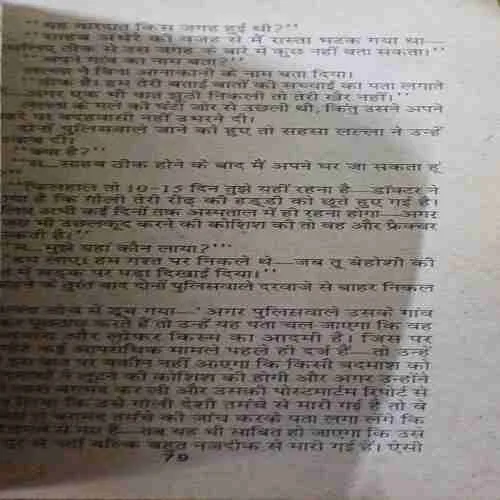 "यह वारदात किस जगह हुई थी?"
"साहब अंधेरे की वजह से मैं रास्ता भटक गया था—
इसलिए ठीक से उस जगह के बारे में कुछ नहीं बता सकता।"
"अपने गांव का नाम बता?"
लल्ला ने बिना आनाकानी के नाम बता दिया।
"ठीक है। हम तेरी बताई बातों की सच्चाई का पता लगाते
अगर एक भी बात झूठी निकली तो तेरी खैर नहीं।"
लल्ला के गले की घंटी जोर से उछली थी, किंतु उसने अपने
चेहरे पर बदहवासी नहीं उभरने दी।
दोनों पुलिसवाले जाने को हुए तो सहसा लल्ला ने उन्हें
"क्या है?"
साहब ठीक होने के बाद मैं अपने घर जा सकता हूं
"फिलहाल तो 10-15 दिन तुझे यहीं रहना है—डॉक्टर ने
है कि गोली तेरी रीढ़ की हड्डी को छूते हुए गई है।
अभी कई दिनों तक अस्पताल में ही रहना होगा—अगर
भी उछलकूद करने की कोशिश की तो वह और फ्रैक्चर
है।"
मुझे यहां कौन लाया?"
हम लाए। हम गश्त पर निकले थे—जब तू बेहोशी की
में सड़क पर पड़ा दिखाई दिया।"
के तुरंत बाद दोनों पुलिसवाले दरवाजे से बाहर निकल
सोच में डूब गया—'अगर पुलिसवाले उसके गांव
पूछताछ करते हैं तो उन्हें यह पता चल जाएगा कि वह
और लोफर किस्म का आदमी है। जिस पर
कई आपराधिक मामले पहले ही दर्ज हैं—तो उन्हें
पर यकीन नहीं आएगा कि किसी बदमाश को
लूटने की कोशिश की होगी और अगर उन्होंने
बरामद कर ली और उसकी पोस्टमार्टम रिपोर्ट से
कि उसे गोली देशी तमंचे से मारी गई है तो वे
तमंचे की जांच करके पता लगा लेंगे कि
तब यह भी साबित हो जाएगा कि उसे
दूर से नहीं बल्कि बहुत नजदीक से मारी गई है। ऐसी
79